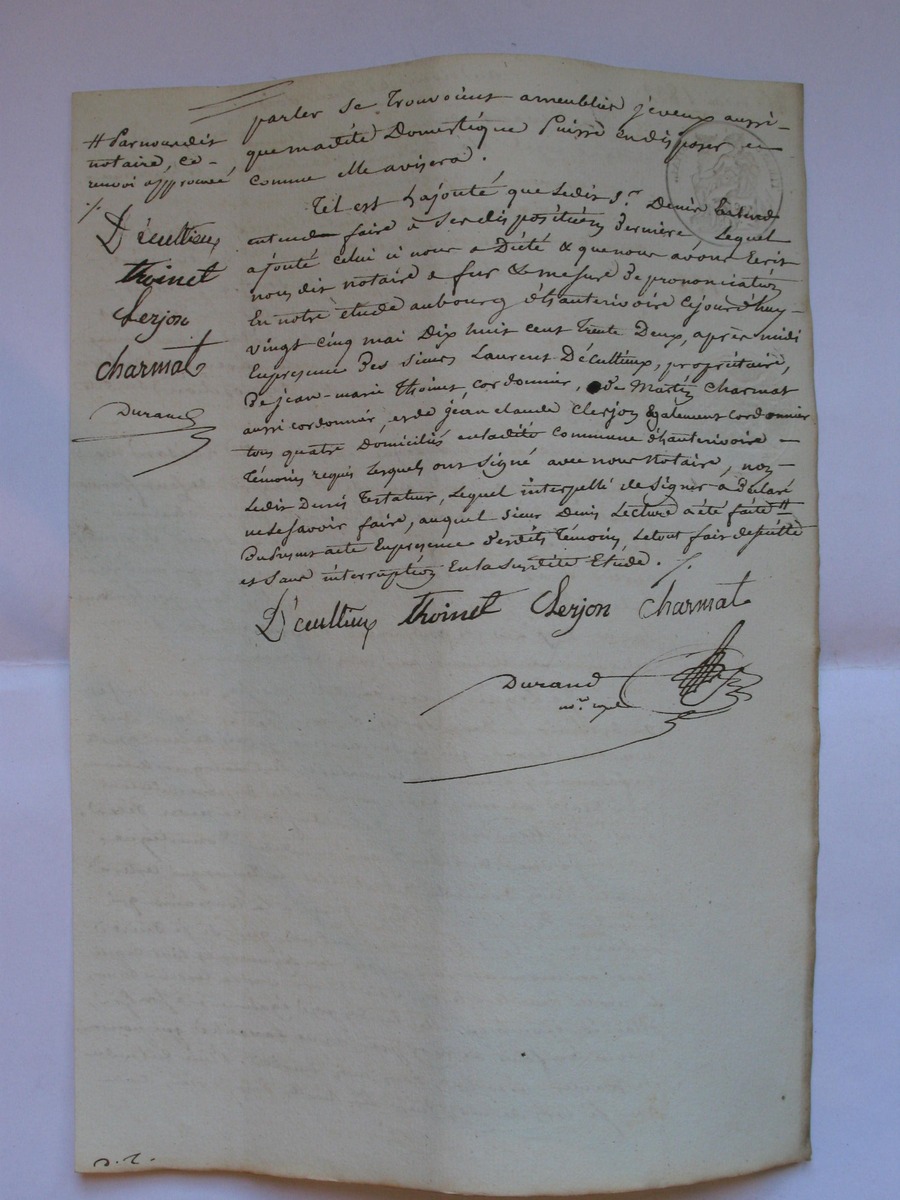 # Par nous dit
notaire, ce
renvoi approuvé
/.
Décultieux
Thoinet
Clerjon
Charmat
Durand
parler se trouvoient ameublis, je veux aussi
que madite Domestique Puisse en disposer
comme elle avisera.
Tel est l'ajouté que Ledit Sr. Denis
entend faire à ses dispositions Dernière, Lequel
ajouté celui ci nous a Dicté & que nous avons Ecrit
nous dit notaire a fur & mesure De prononciation
En notre étude au bourg d'hauterivoire Cejourd'huy
vingt cinq mai Dix huit cent Trente Deux, après midi
En presence Des sieurs Laurent Décultieux, propriétaire,
De jean-marie Thoinet cordonnier, De Martin Charmat
aussi cordonnier, et de jean claude Clerjon également cordonnier
tous quatre Domiciliés en ladite Commune d'hauterivoire
Témoins requis Lesquels ont signé avec nous Notaire, non
Ledit Denis Testateur, Lequel interpellé de signer a Déclaré
ne le savoir faire, auquel sieur Denis Lecture a été faite #
Du present acte En presence Desdits Témoins Le tout fait de suitte
et sans interruption En la susdite Etude. /.
Décultieux Thoinet Clerjon Charmat
Durand